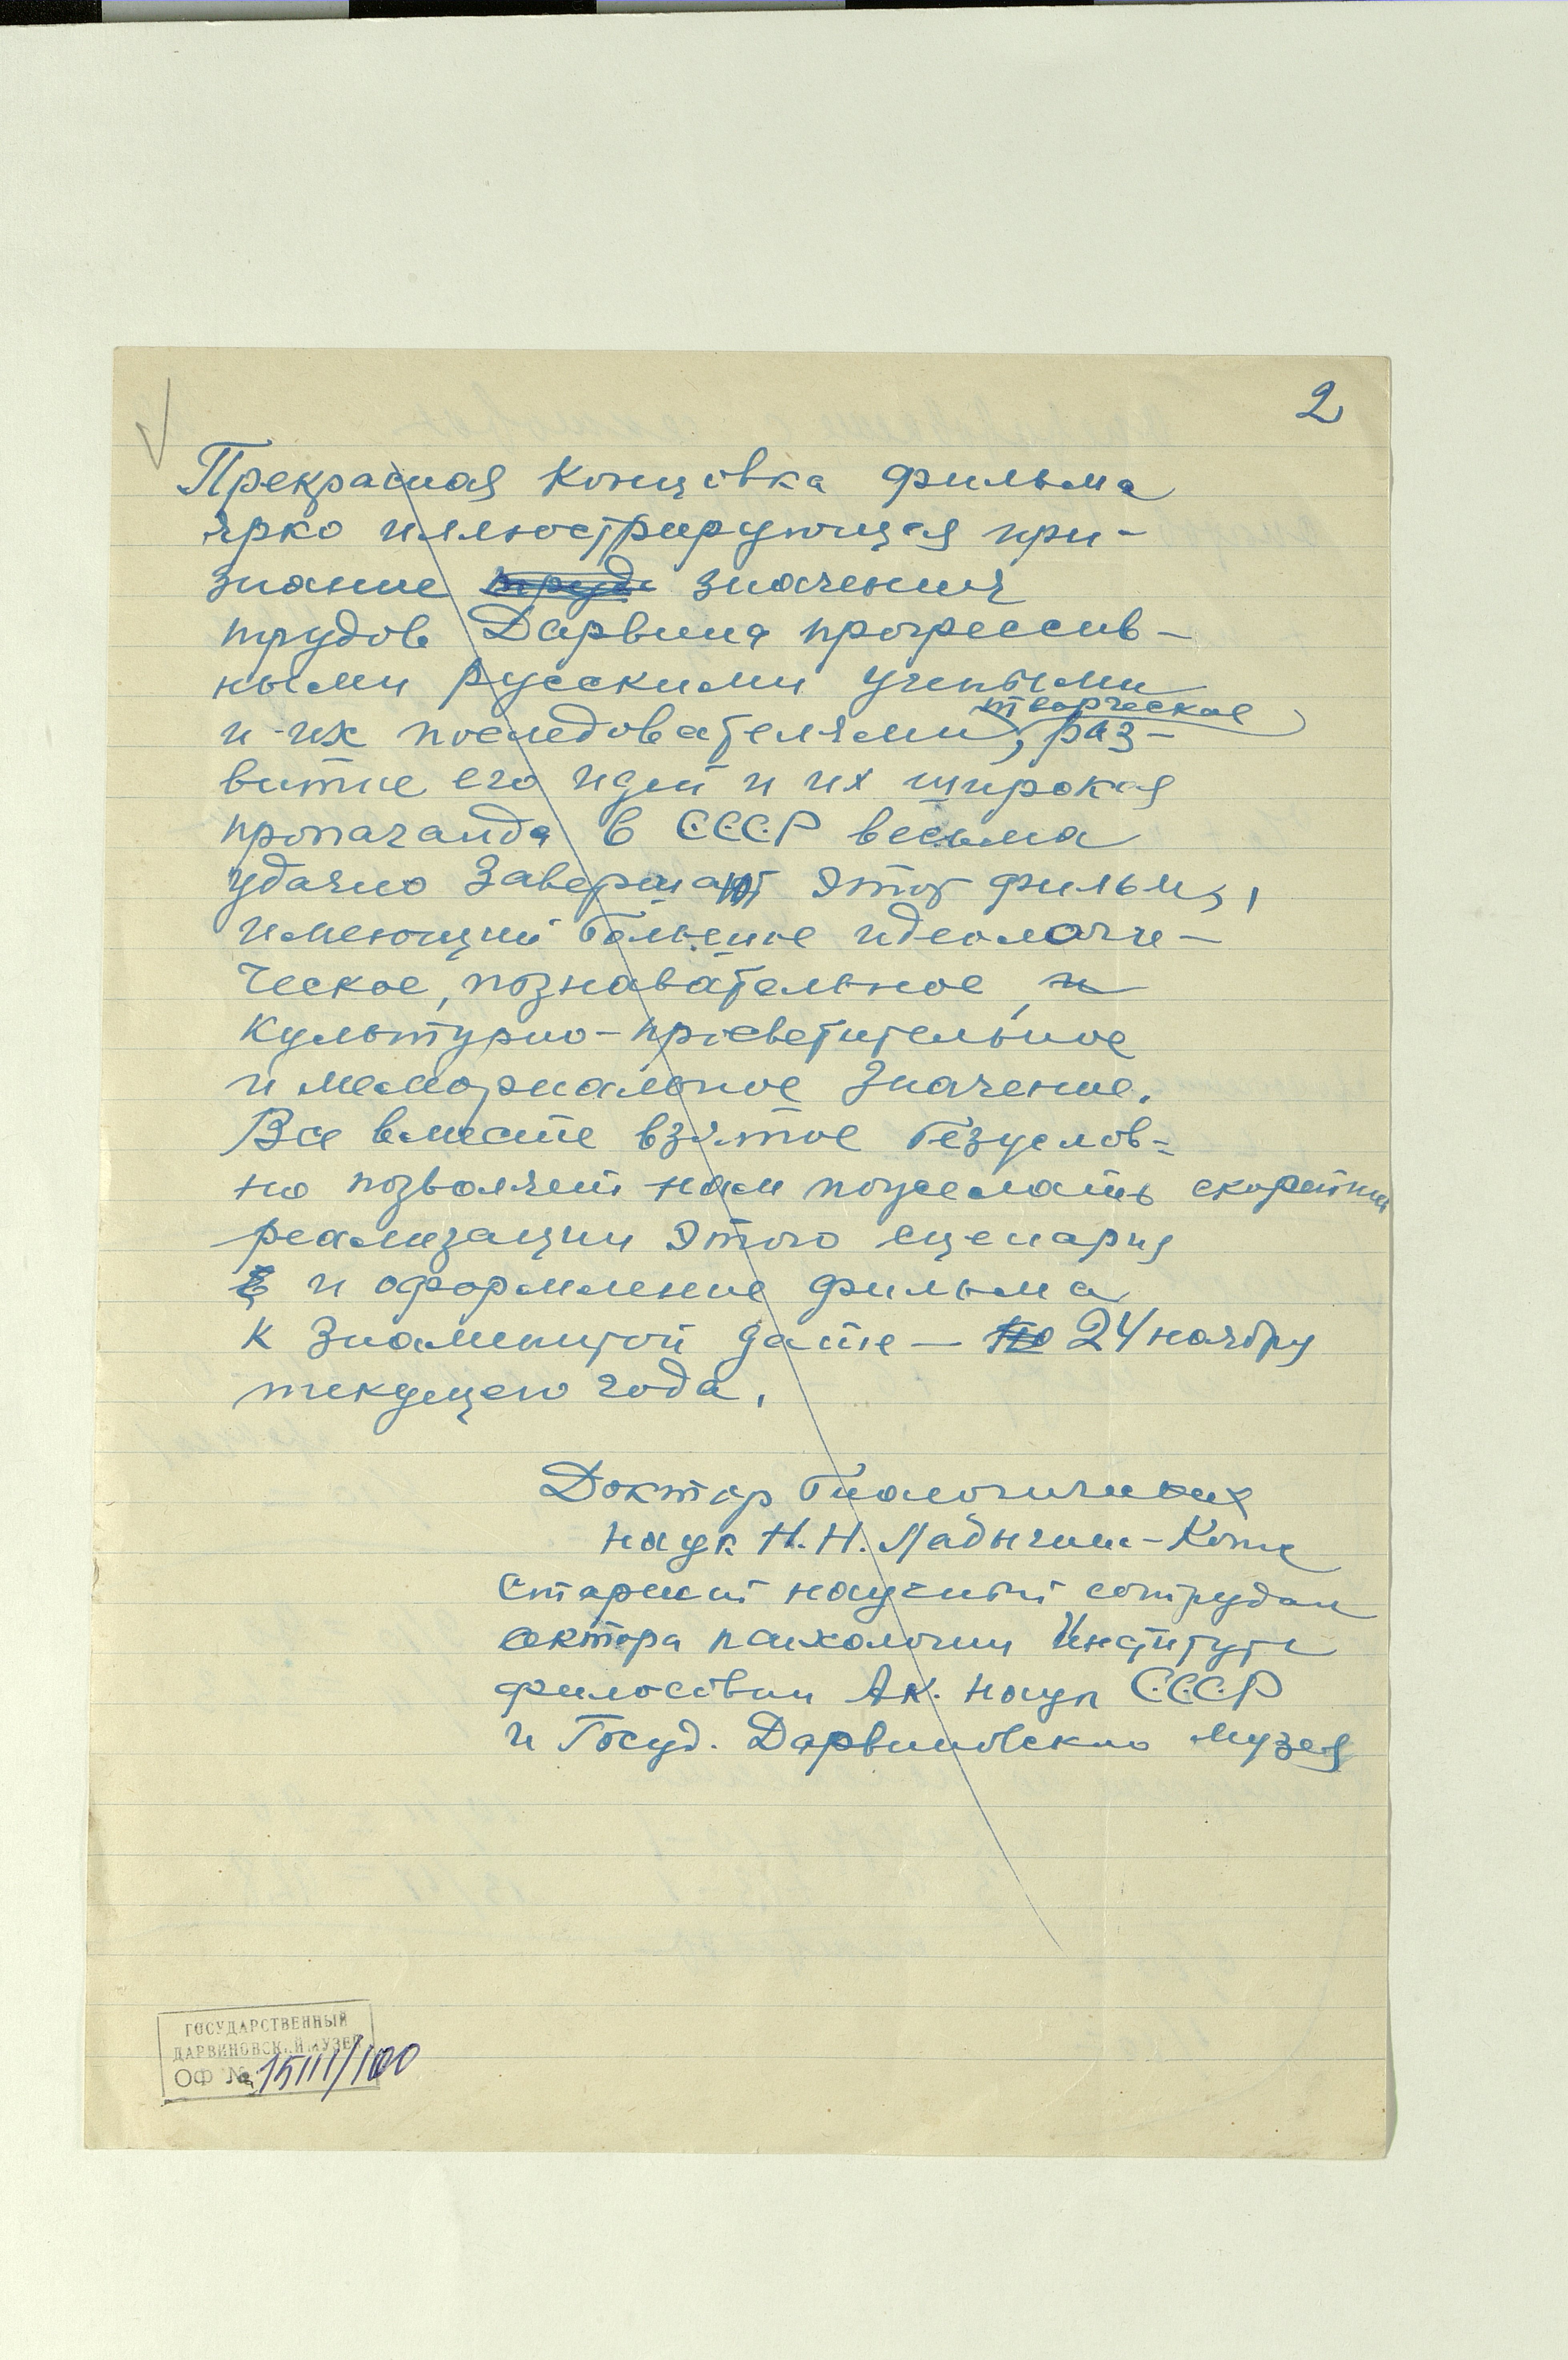 2
Прекрасная концовка фильма
ярко иллюстрирующая при-
знание труд значения
трудов Дарвина прогрессив-
ными русскими учеными
творческое
и их последователями, раз-
витие его идей и их широкая
пропаганда в С.С.С.Р весьма
удачно завершают этот фильм,
имеющий большое идеологи-
ческое, познавательное, и
культурно-просветительное
и мемориальное значение.
Все вместе взятое безуслов-
но позволяет нам пожелать скорейший
реализации этого сценария
и оформление фильма
к знаменитой дате — по 24 ноябру
текущего года.
Доктор биологических
наук Н.Н. Ладыгина-Котс
Старший научный сотрудник
сектора психологии Института
философии Ак. наук С.С.С.Р
и Госуд. Дарвиновского музея
ГОСУДАРСТВЕННЫЙ
ДАРВИНОВСКИЙ МУЗЕЙ
ОФ № 15111/100